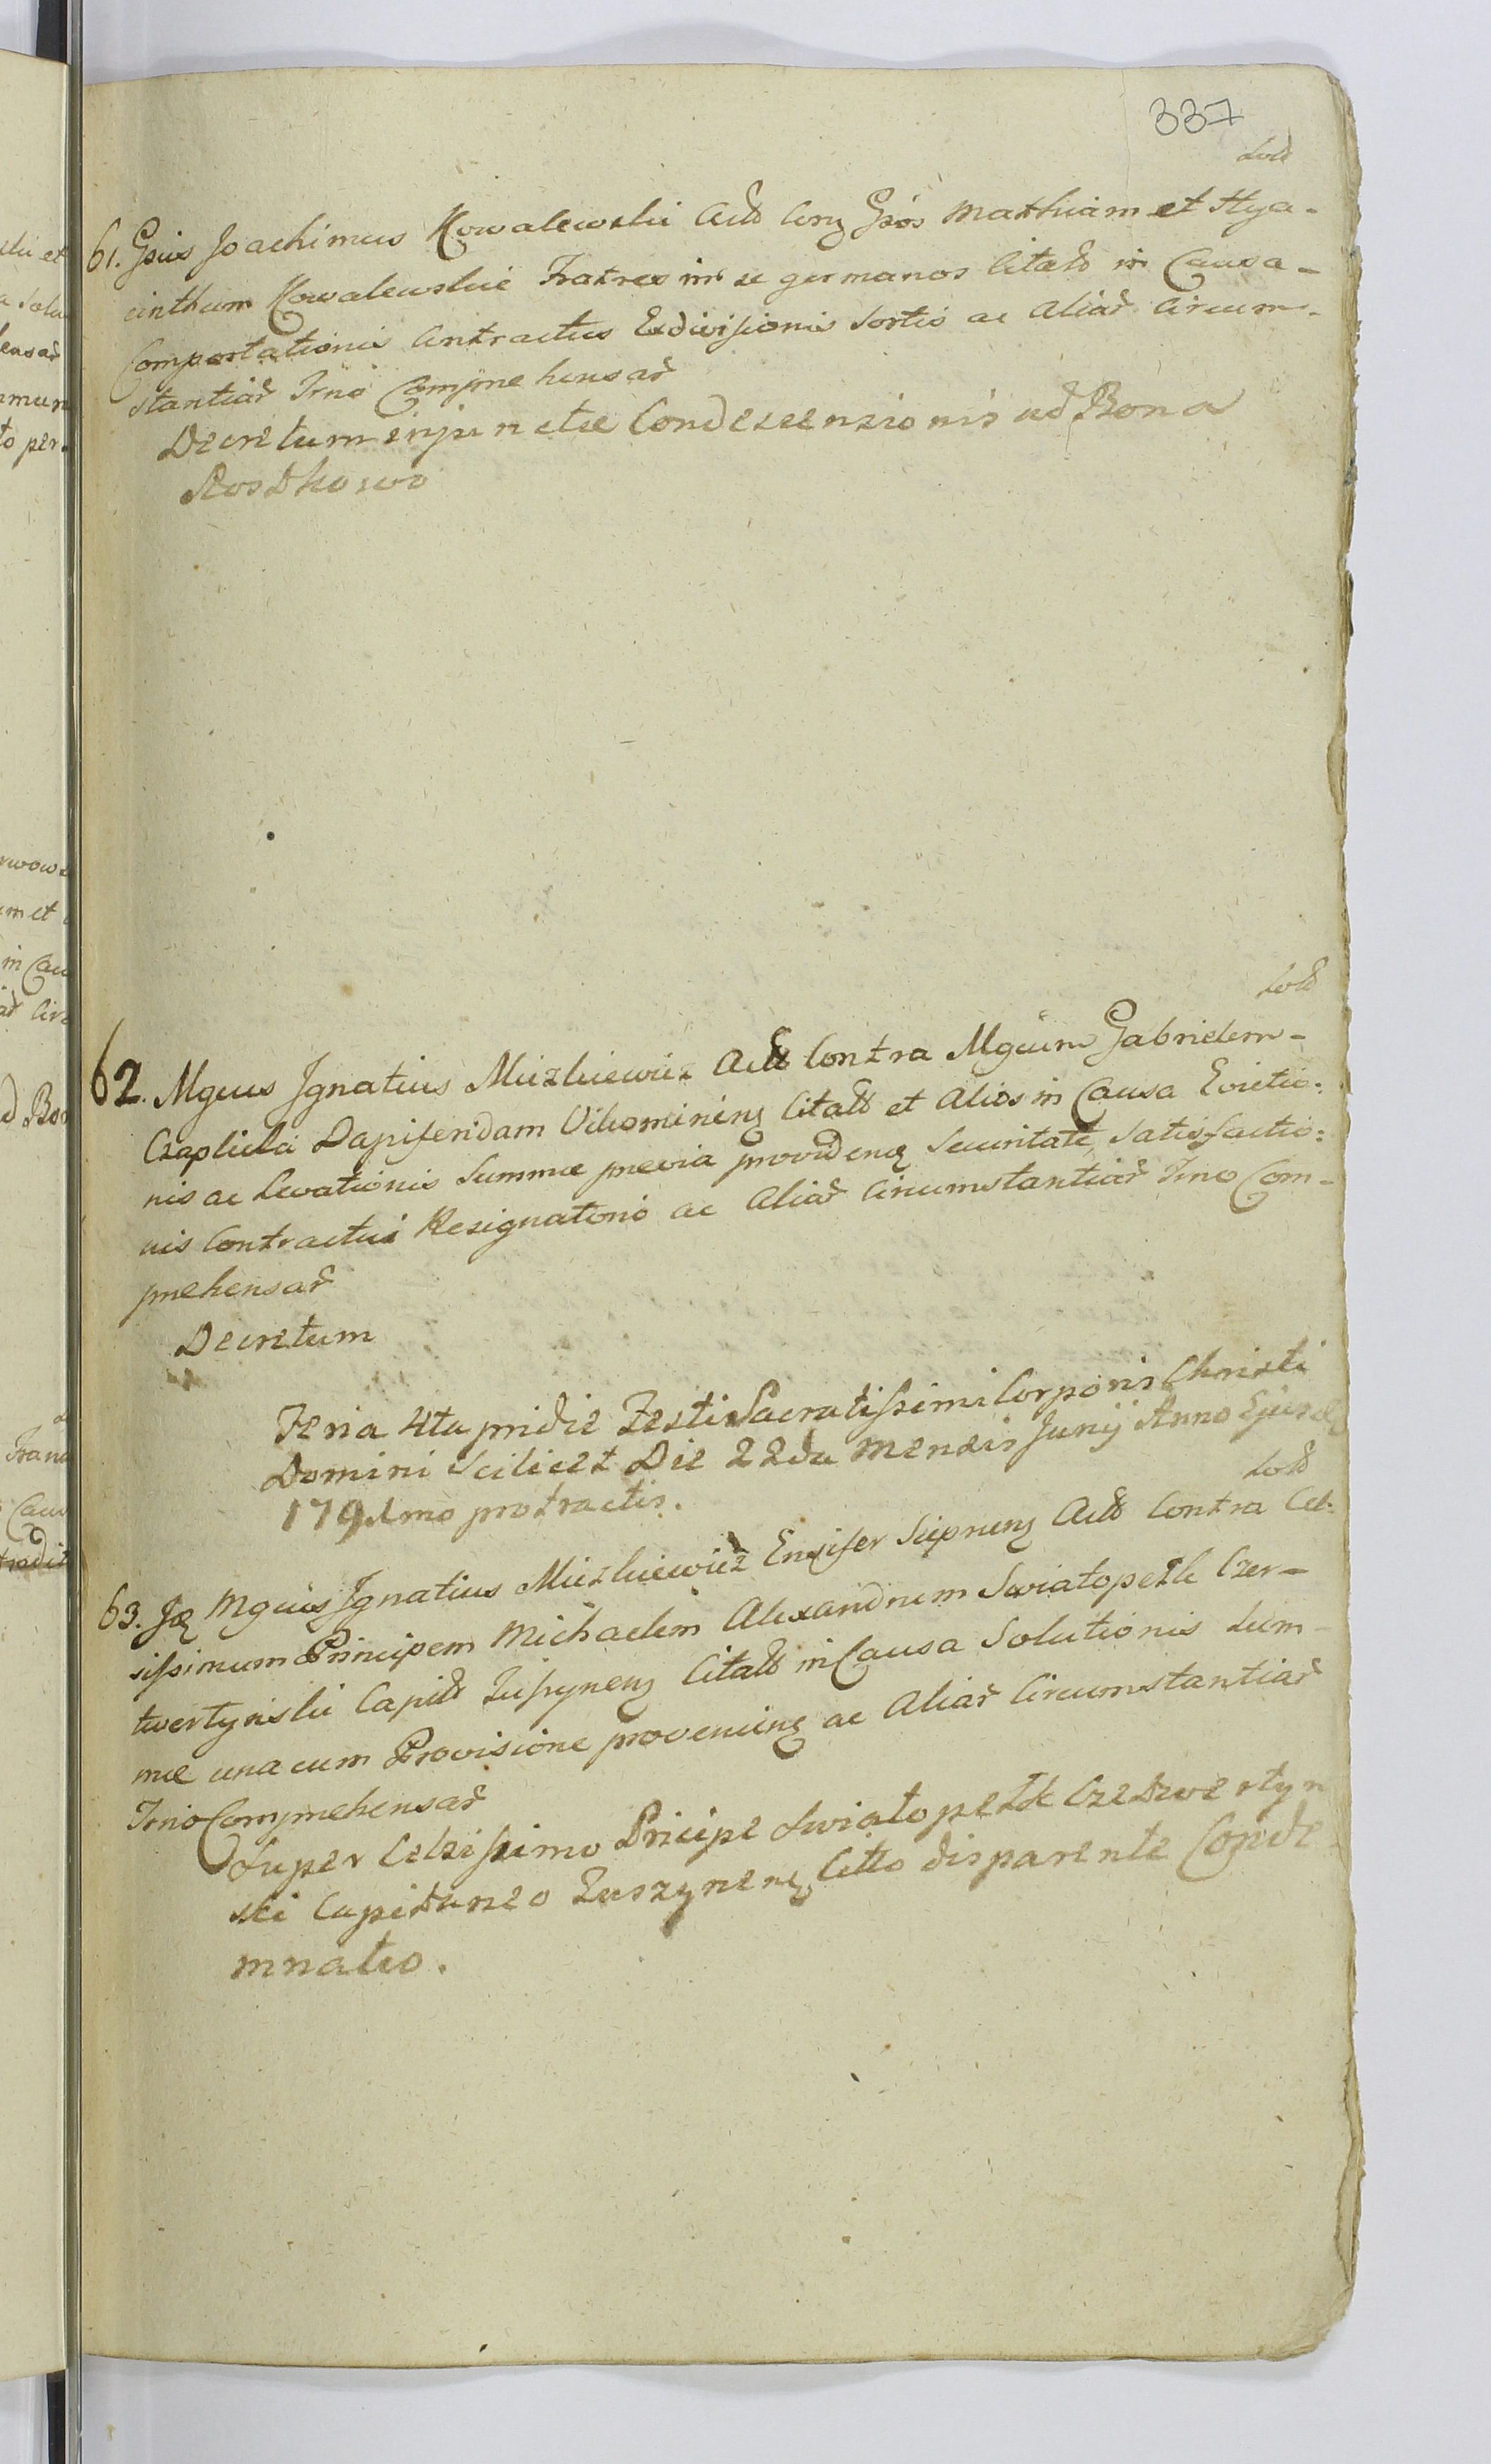 337
Sold
61. Gsus Joachimus Kowalewski Actt Conz Gsos Mathiam et Hya-
cinthum Kowalewskie Fratres int se germanos Citatt in Causa
Comportationis Contractus Exdivisionis Sortis ac Aliar Circum-
stantiar Trno Comprehensar
Decretum injunctae Condescensionis ad Bona
Rostkowo
Sold
62. Mgcus Ignatius Miczkiewicz Actt Contra Mgcum Gabrielem
Czaplicki Dapiferidam Vilcominenz Citatt et Alios in Causa Evictio:
nis ac Levationis Summae previa providenz Securitate, Satisfactio:
nis Contractui Resignatorio ac Aliar Circumstantiar Trno Com-
prehensar
Decretum
Feria 4ta pridie Festi Sacratissimi Corporis Christi
Domini Scilicet Die 22da Mensis Junij Anno Ejusdz
1791mo protractis.
Sold
63. Jz Mgcus Ignatius Miczkiewicz Ensifer Siepnenz Actt Contra Cel-
sissimum Principem Michaelem Alexandrum Swiatopełk Czer-
twertynski Capitt Zuszynenz Citatt in Causa Solutionis Sum-
mae una cum Provisione provenienz ac Aliar Circumstantiar
Trno Comprehensar
Super Celsissimo Pricipe Swiatopełk Czetwertyn
ski Capitaneo Zuszynenz Citto disparente Conde
mnatio.